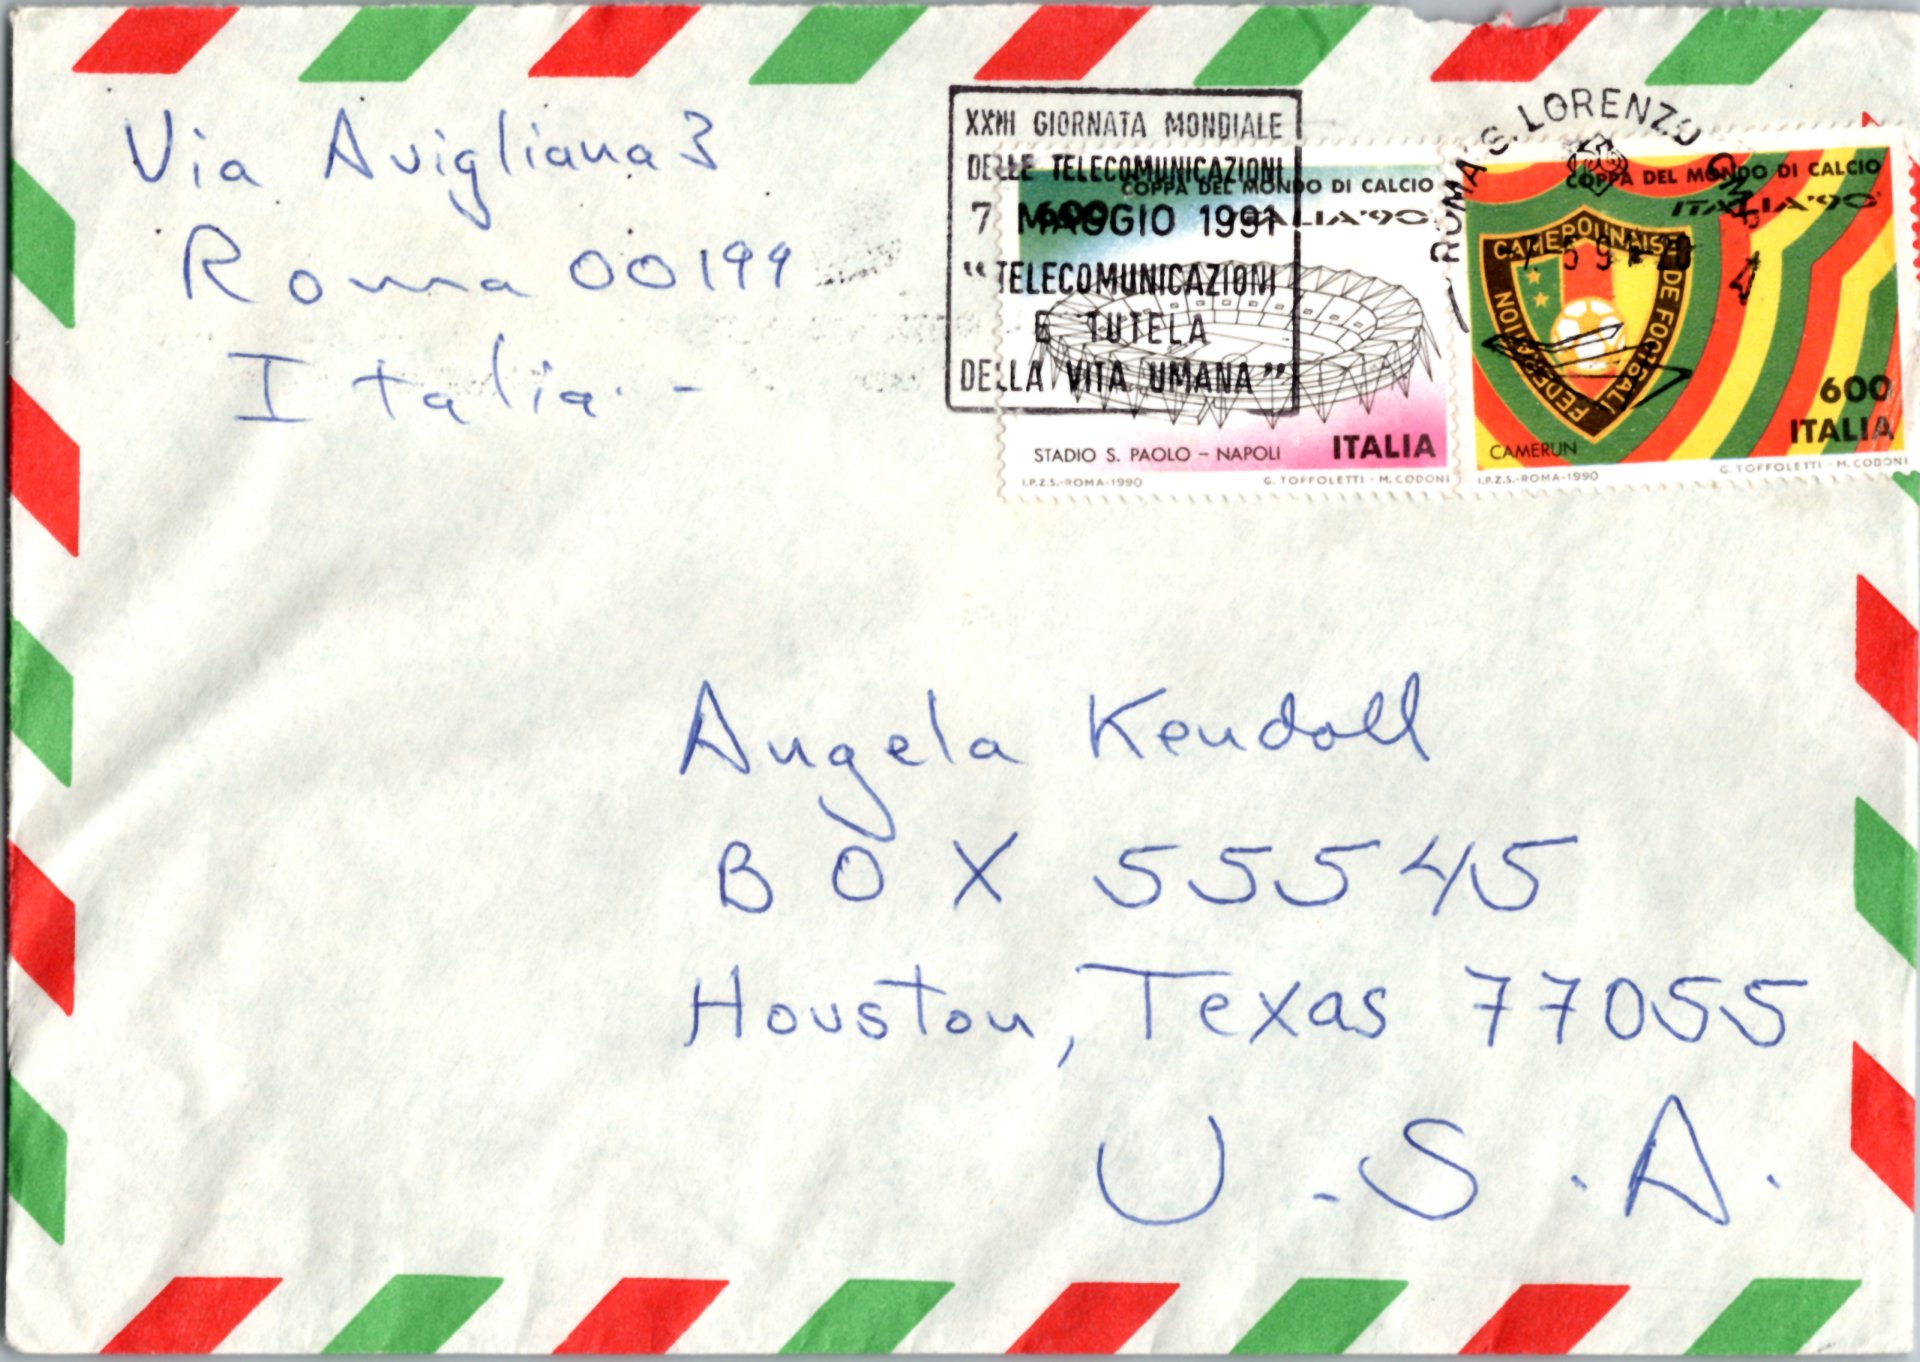 Via Avigliana 3
Roma 00199
Italia. -
XXIII GIORNATA MONDIALE
DELLE TELECOMUNICAZIONI
7 MAGGIO 1991
"TELECOMUNICAZIONI
E TUTELA
DELLA VITA UMANA"
COPPA DEL MONDO DI CALCIO
ITALIA'90
600
STADIO S. PAOLO - NAPOLI
ITALIA
I.P.Z.S.-ROMA-1990
G. TOFFOLETTI - M. CODONI
ROMA S. LORENZO
COPPA DEL MONDO DI CALCIO
ITALIA'90
FEDERATION CAMEROUNAISE DE FOOTBALL
600
ITALIA
CAMERUN
I.P.Z.S.-ROMA-1990
G. TOFFOLETTI - M. CODONI
Angela Kendall
BOX 55545
Houston, Texas 77055
U.S.A.